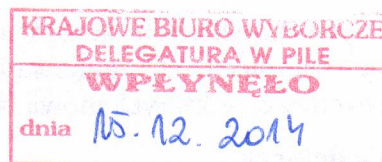 KRAJOWE BIURO WYBORCZE
DELEGATURA W PILE
WPŁYNĘŁO
dnia 15. 12. 2014